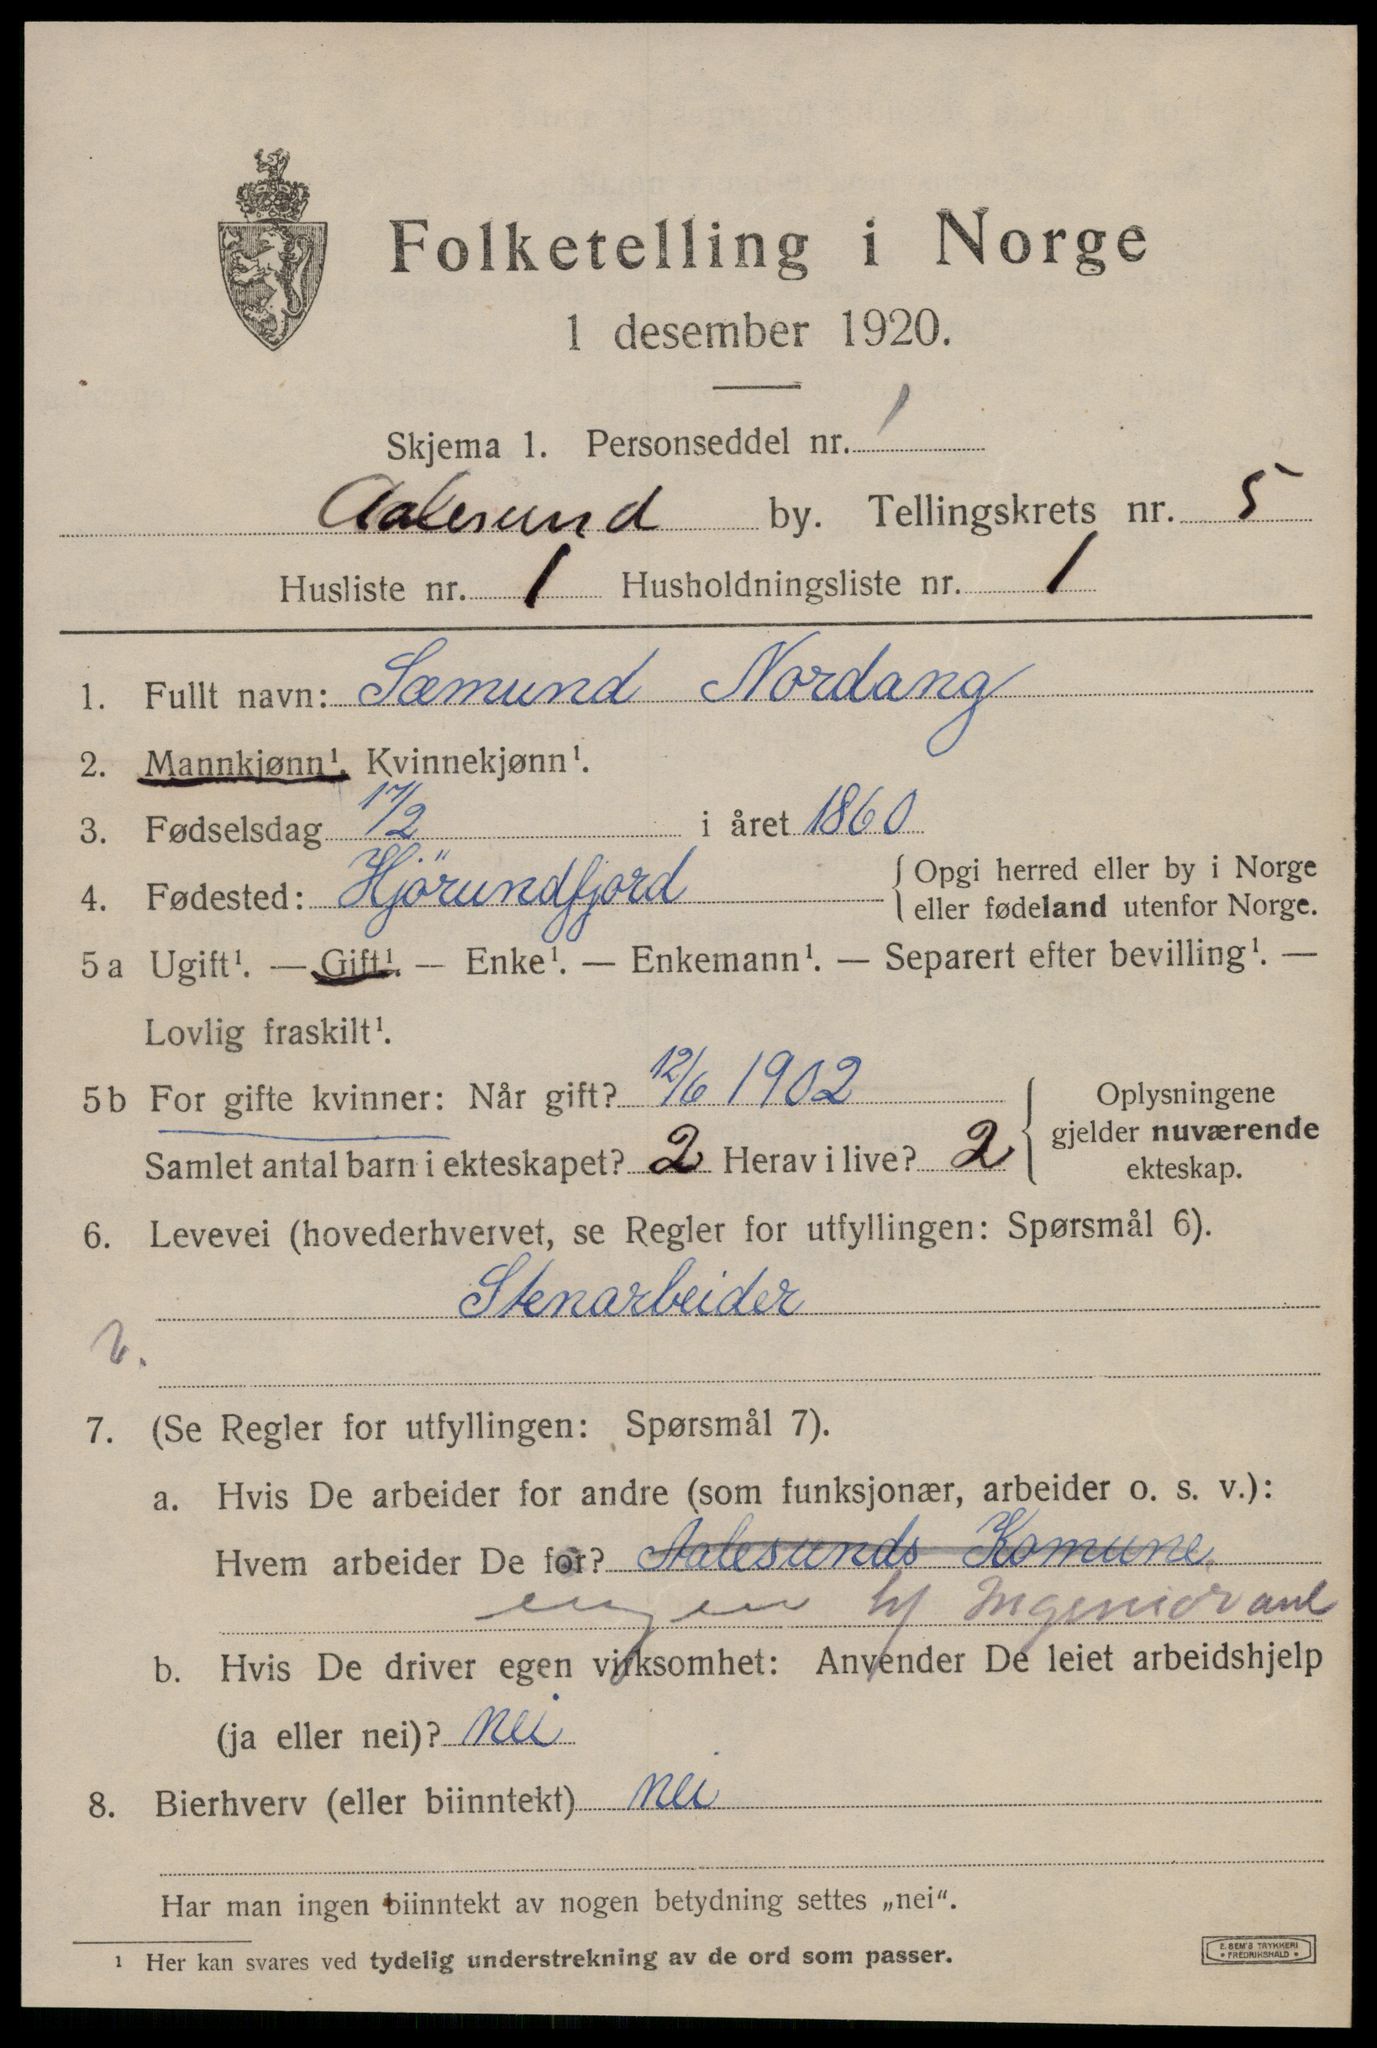 Folketelling i Norge
1 desember 1920.
Skjema 1. Personseddel nr. 1
Aalesund by. Tellingskrets nr. 5
Husliste nr. 1 Husholdningsliste nr. 1
1. Fullt navn: Sæmund Nordang
2. Mannkjønn¹. Kvinnekjønn¹.
3. Fødselsdag 17/2 i året 1860
4. Fødested: Hjörundfjord { Opgi herred eller by i Norge
eller fødeland utenfor Norge.
5a Ugift¹. — Gift¹. — Enke¹. — Enkemann¹. — Separert efter bevilling¹. —
Lovlig fraskilt¹.
5b For gifte kvinner: Når gift? 12/6 1902
Samlet antal barn i ekteskapet? 2 Herav i live? 2
{ Oplysningene
gjelder nuværende
ekteskap.
6. Levevei (hovederhvervet, se Regler for utfyllingen: Spørsmål 6).
Stenarbeider
7. (Se Regler for utfyllingen: Spørsmål 7).
a. Hvis De arbeider for andre (som funksjonær, arbeider o. s. v.):
Hvem arbeider De for? Aalesunds Komune
Ingeniör
b. Hvis De driver egen virksomhet: Anvender De leiet arbeidshjelp
(ja eller nei)? nei
8. Bierhverv (eller biinntekt) nei
Har man ingen biinntekt av nogen betydning settes „nei“.
¹ Her kan svares ved tydelig understrekning av de ord som passer.
E. SEM'S TRYKKERI
* FREDRIKSHALD *